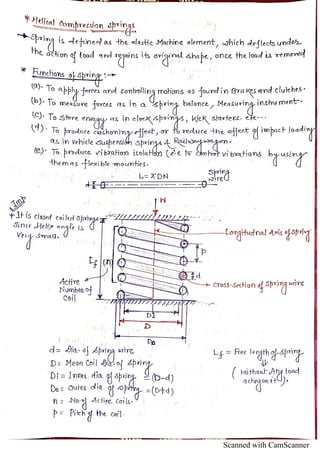 * Helical Compression springs
→ Spring is defined as the elastic Machine element, which deflects under
the action of load and regains its original shape, once the load is removed
* Functions of Spring :→
(a). To apply forces and controlling motions as found in Brakes and clutches.
(b). To measure forces as in a spring balance, Measuring instrument.
(c). To store energy as in clock springs, kick starters, etc.
(d). To produce cushoning effect, or to reduce the effect of impact loading
as in vehicle suspension springs & Railway wagon.
(e). To produce vibration isolation (i.e. to control vibrations by using
them as flexible mountings.
L = πDN
Spring wire
d
W
* It is closed coiled spring
Since Helix angle is
very small.
Longitudinal Axis of spring
P
Lf
(n)
d
Active
Number of
Coil
Cross-Section of Spring wire
DI
D
Do
d = Dia. of Spring wire
D = Mean Coil Dia. of Spring
DI = Inner dia of Spring = (D-d)
Do = Outer dia of Spring = (D+d)
n = No. of Active Coils.
P = Pitch of the coil.
Lf = Free length of Spring
(Without Any load
acting on it).
Scanned with CamScanner